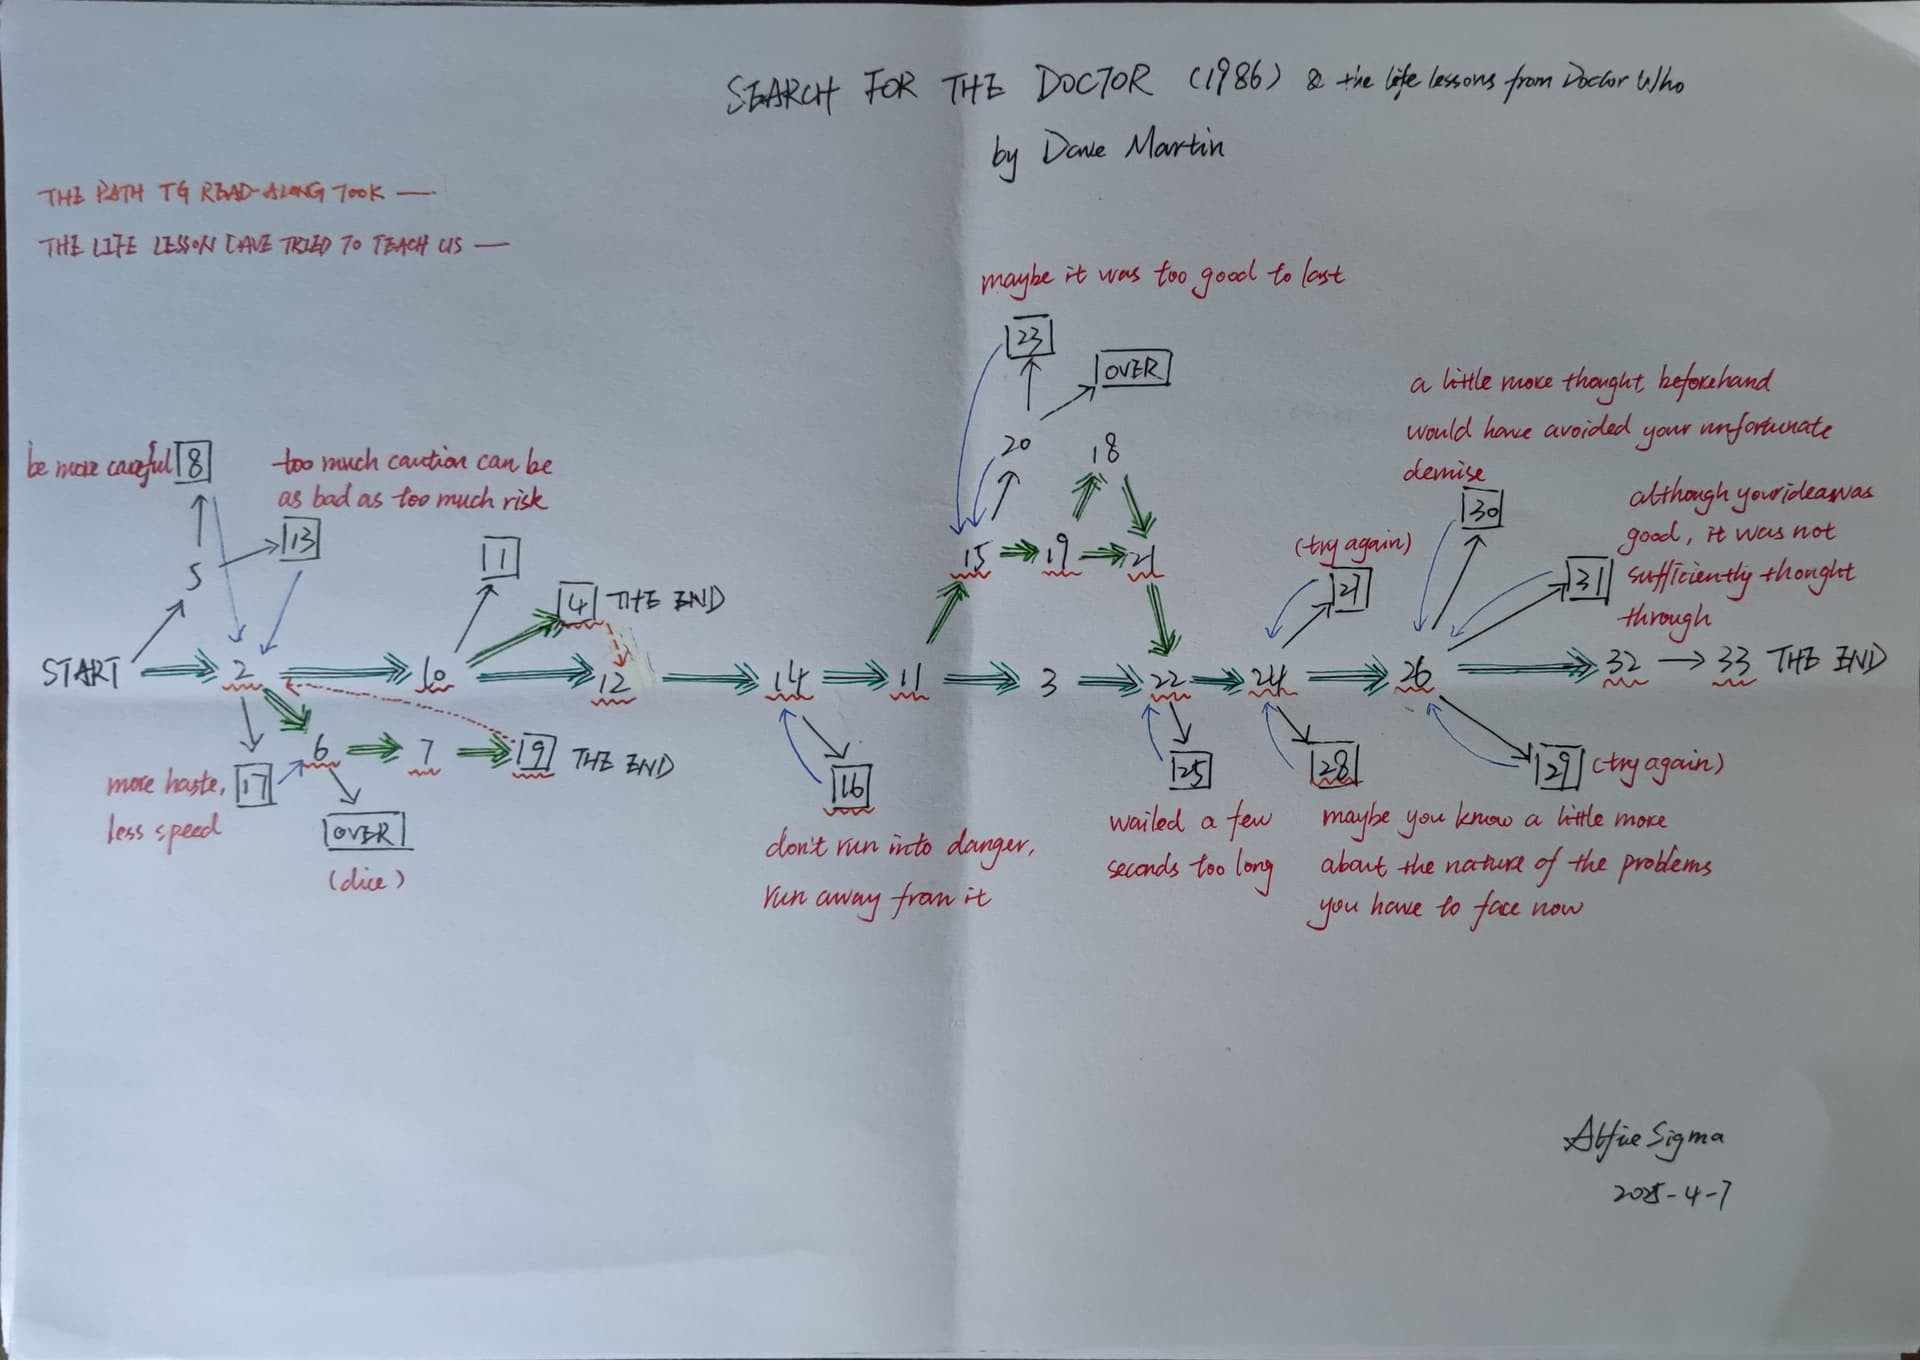 SEARCH FOR THE DOCTOR (1986) & the life lessons from Doctor Who
by Dave Martin
THE PATH TG READ-ALONG TOOK —
THE LIFE LESSON DAVE TRIED TO TEACH US —
maybe it was too good to last
23
OVER
a little more thought beforehand
would have avoided your unfortunate
demise
20
18
be more careful 8
too much caution can be
as bad as too much risk
30
although your idea was
good, it was not
sufficiently thought
through
13
1
5
15
19
21
(try again)
27
31
4 THE END
START
2
10
12
14
11
3
22
24
26
32
33 THE END
6
7
9 THE END
more haste,
less speed
17
OVER
(dice)
16
don't run into danger,
run away from it
25
waited a few
seconds too long
28
maybe you know a little more
about the nature of the problems
you have to face now
29 (try again)
Alfie Sigma
2025-4-7